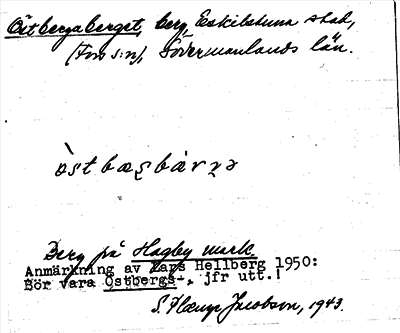 Östbergaberget, berg, Eskilstuna stad,
(Fors sn), Södermanlands län.
òstbæʂbárʐə
Berg på Hagby mark.
Anmärkning av Lars Hellberg 1950:
Bör vara Östbergs-, jfr utt.!
S. Jacobson, 1943.